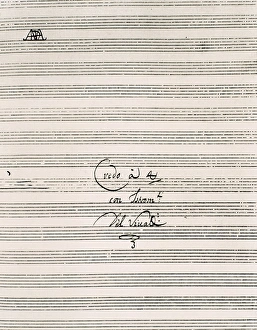 Credo à 4
con Istromti
Del Vivaldi
3